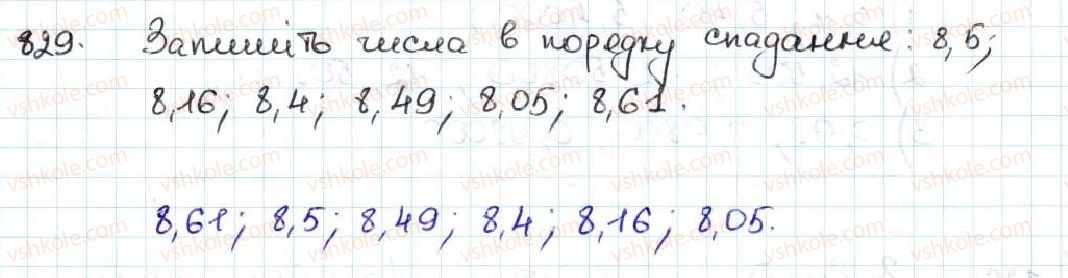 829. Запишіть числа в порядку спадання: 8,5;
8,16; 8,4; 8,49; 8,05; 8,61.
8,61; 8,5; 8,49; 8,4; 8,16; 8,05.